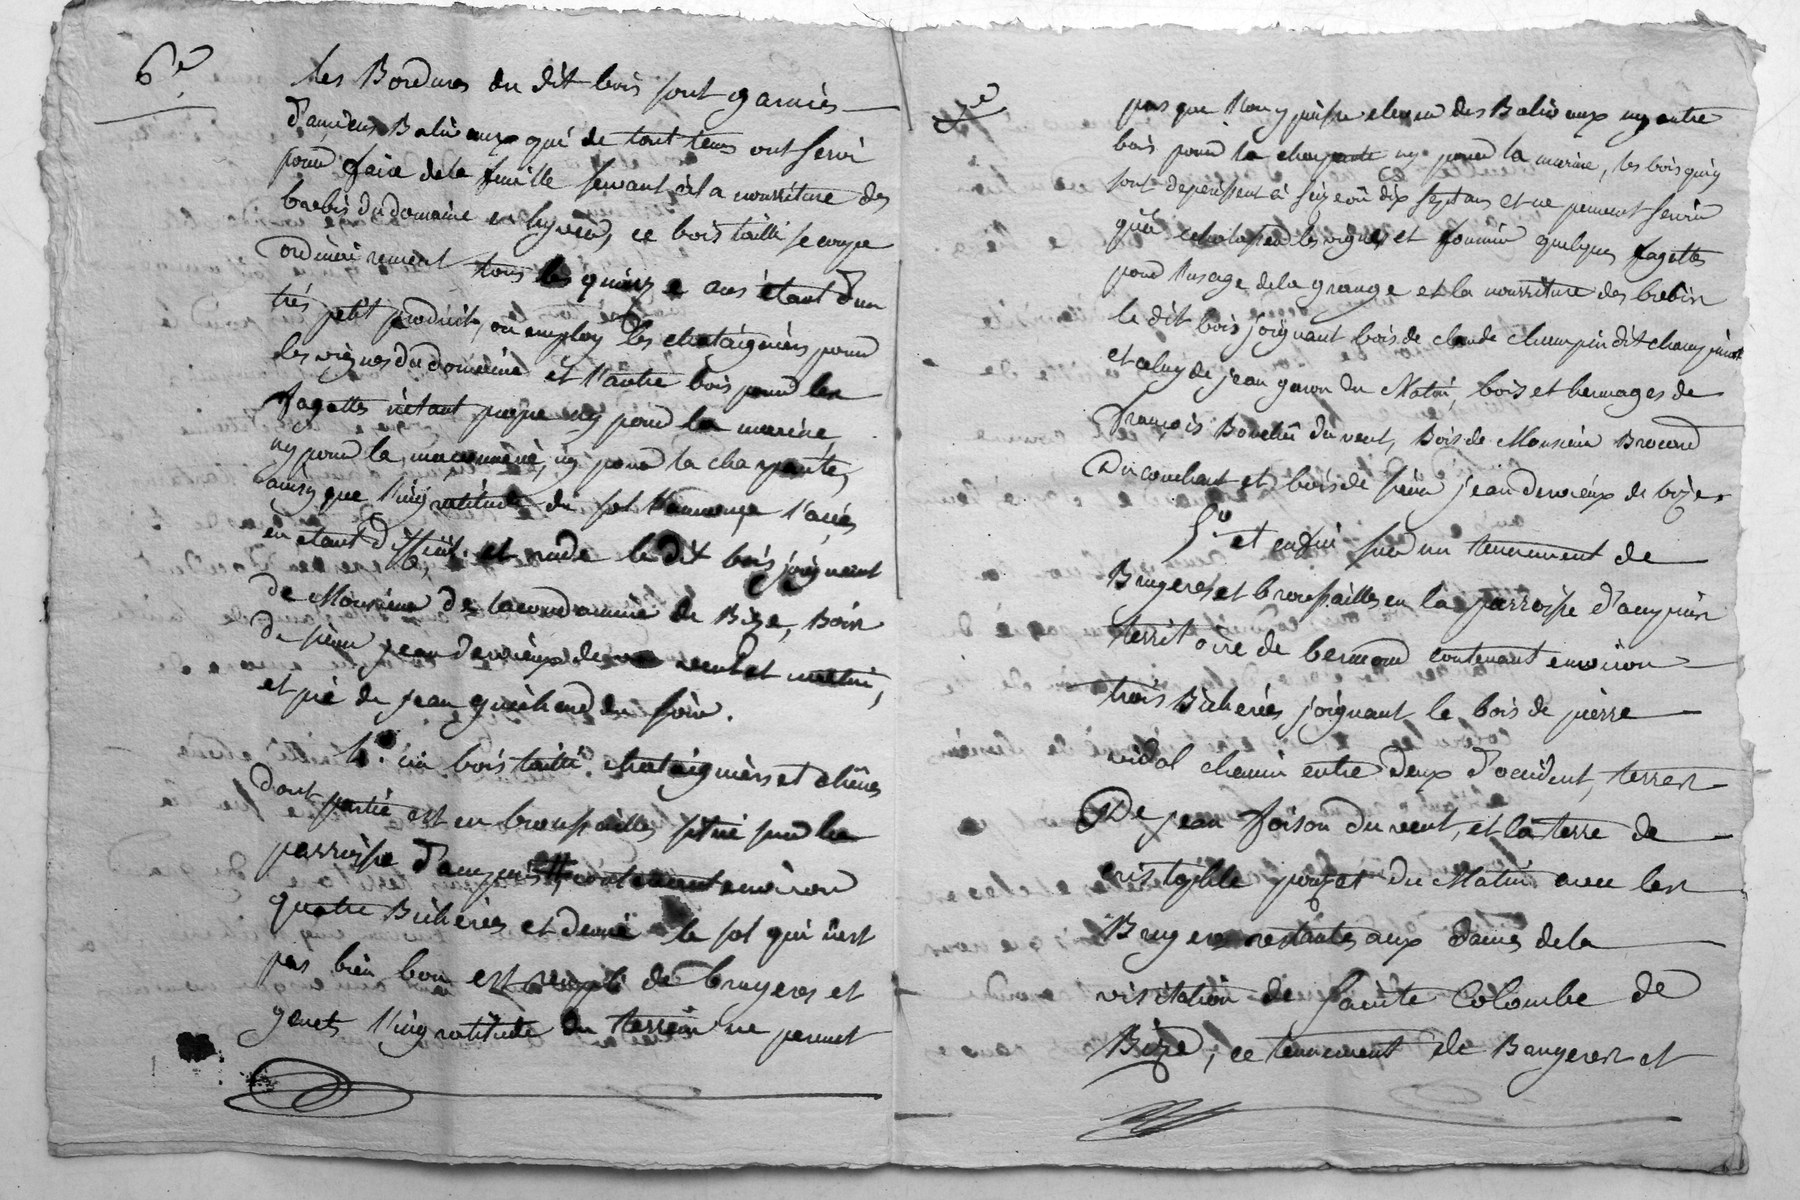 6e
les Bordures du dit bois sont garnies
d'anciens Baliveaux qui de tout tems ont servi
pour faire de la feuille servant à la nourriture des
brebis du domaine en hyver, ce bois taillis se coupe
ordinairement tous les quinze ans étant d'un
trés petit produit, on employ les chataigniers pour
les vignes du domaine et l'autre bois pour les
fagottes n'étant propre ny pour la marine
ny pour la maconnerie, ny pour la charpante,
ainsy que l'ingratitude du sol l'annonce l'accés
en étant difficile et rude le dit bois joignant
de Monsieur de lacondamine de Bize, Bois
de sieur jean dervieux de vent et matin,
et pré de jean guichard du soir.
4o. un bois taillis chataigniers et chênes
dont partie est en broussailles situé sur la
parroisse d'ampuis contenant environ
quatre Bicherées et demie le sol qui n'est
pas bien bon est rempli de bruyeres et
genets l'ingratitude du terrein ne permet
7e
pas que l'on y puisse elever des Baliveaux ny autre
bois pour la charpante ny pour la marine, les bois qui y
sont deperissent à seize où dix sept ans et ne peuvent servir
qu'à echalasser les vignes et fournir quelques fagottes
pour l'usage de la grange et la nourriture des brebis
le dit bois joignant bois de claude champin dit champinot
et celuy de jean garon du Matin, bois et hermages de
françois Bouchü du vent, Bois de Monsieur Brocard
Du couchant et bois de sieur jean dervieux de bize.
5o et enfin sur un tenement de
Bruyeres et broussailles en la parroisse d'ampuis
territoire de bermond contenant environ
trois Bicherées joignant le bois de pierre
vidal chemin entre deux d'occident, terres
De jean foison du vent, et la terre de
cristophle pouzet du Matin avec les
Bruyeres restantes aux dames de la
visitation de sainte Colombe de
Bize, ce tenement de Bruyeres et